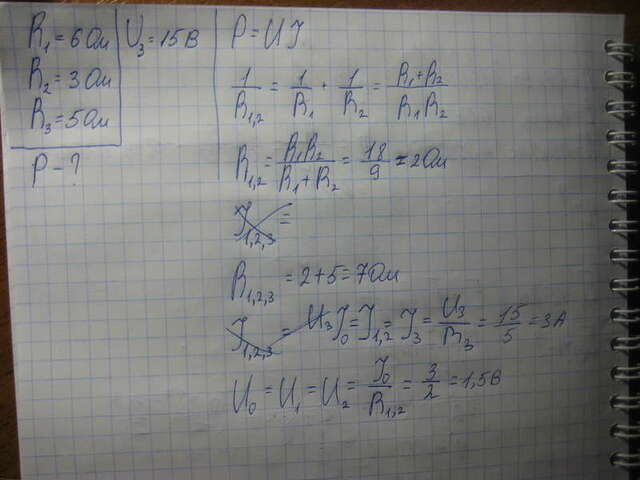 R₁ = 6 Ом
R₂ = 3 Ом
R₃ = 5 Ом
P - ?
U₃ = 15 В
P = UI
1/R₁,₂ = 1/R₁ + 1/R₂ = R₁+R₂/R₁R₂
R₁,₂ = R₁R₂/R₁+R₂ = 18/9 = 2 Ом
I₁,₂,₃ =
R₁,₂,₃ = 2+5 = 7 Ом
I₁,₂,₃ = U₃ I₀ = I₁,₂ = I₃ = U₃/R₃ = 15/5 = 3 А
U₀ = U₁ = U₂ = I₀/R₁,₂ = 3/2 = 1,5 В